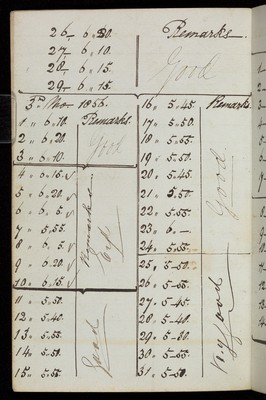 26 - 6 „ 30.
Remarks.
27 „ 6 „ 10.
28 „ 6 „ 15.
Good
29 „ 6 „ 15.
3rd Mo 1856.
1 „ 6 „ 10.
Remarks.
2 „ 6 „ 20.
Good
3 „ 6 „ 10.
4 „ 6 „ 15.
5 „ 6 „ 20.
6 „ 6 „ 5.
Remarks
7 „ 5.55.
8 „ 6 „ 5.
9 „ 6.20.
10 „ 6.15.
11 „ 5.50.
12 „ 5.40.
13 „ 5.55.
Good
14 „ 5.50.
15 „ 5.55.
16 „ 5.45
Remarks.
17 „ 5.50.
18 „ 5.55.
19 „ 5.50.
20 „ 5.45.
Good
21 „ 5.50.
22 „ 5.55.
23 „ 6.—
24 „ 5.55.
25 „ 5-50.
26 „ 5-55.
27 „ 5-45
Vry Good
28 „ 5-40.
29 „ 5-30.
30 „ 5-55.
31 „ 5-50.